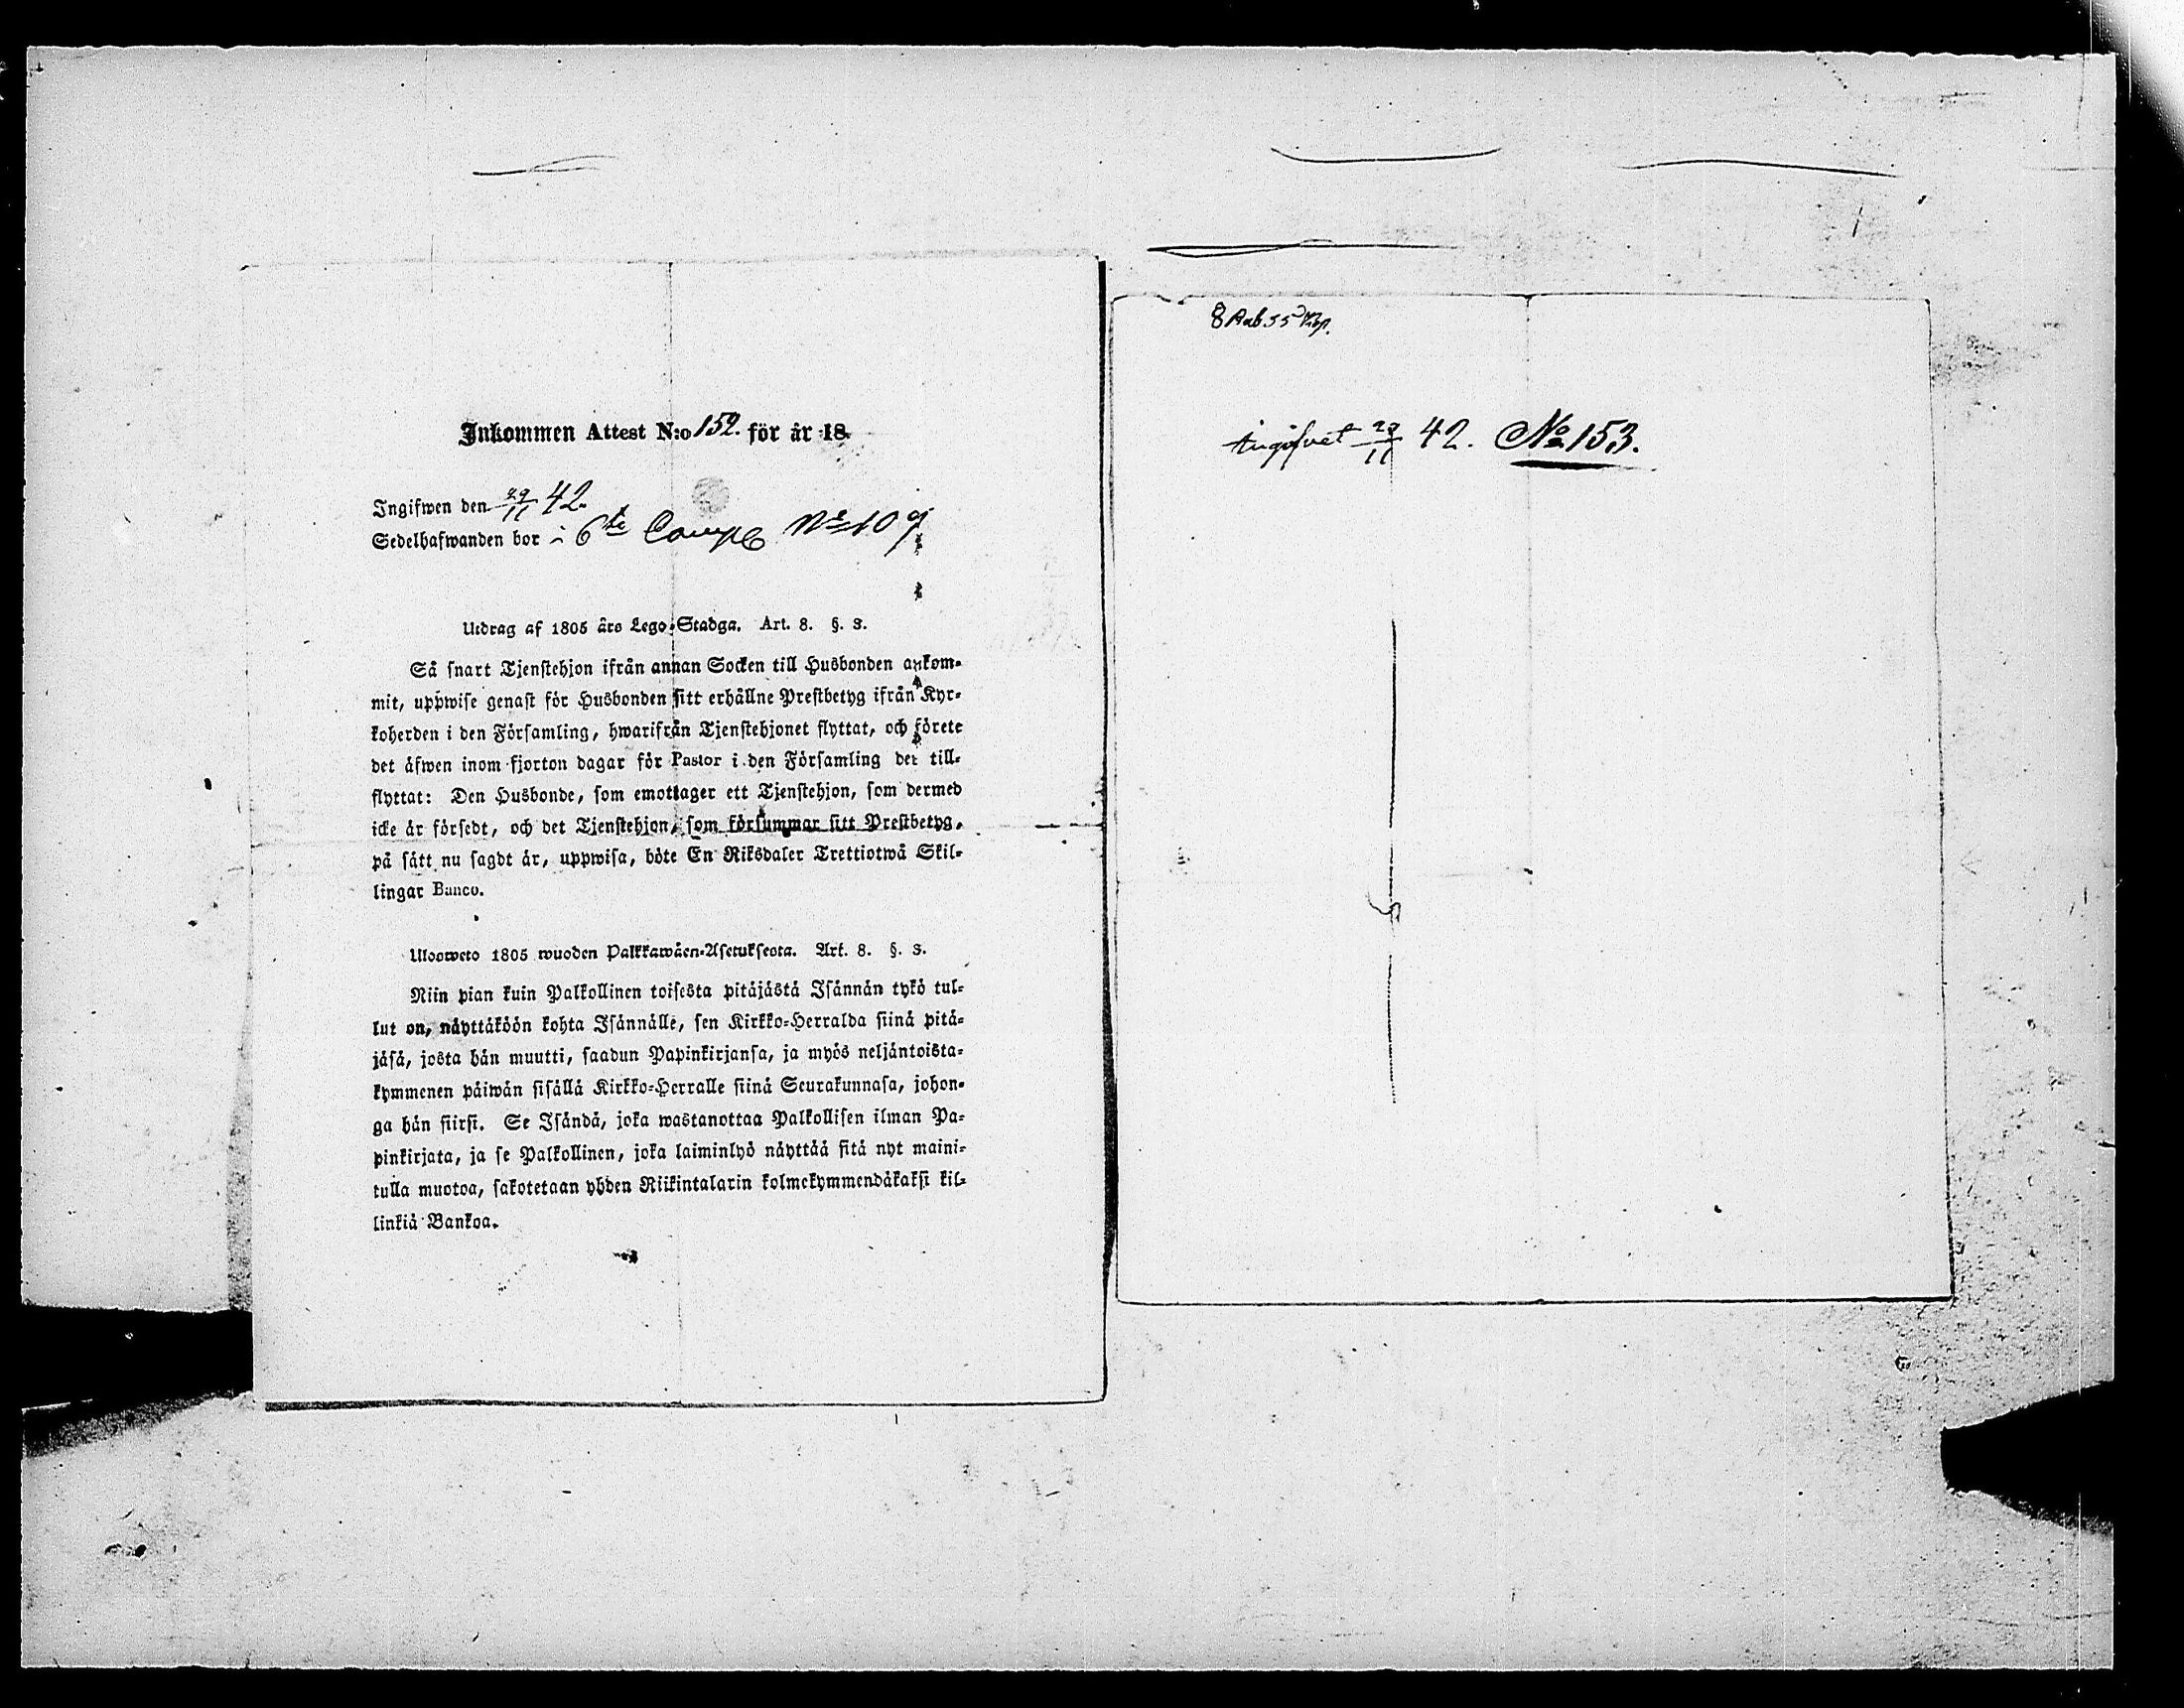 Inkommen Attest N:o 152. för år 18
Ingifwen den 29/11 42.
Sedelhafwanden bor i 6te Comp No 109
Utdrag af 1805 års Lego-Stadga. Art. 8. §. 3.
Så snart Tjenstehjon ifrån annan Socken till Husbonden ankom-
mit, uppwise genast för Husbonden sitt erhållne Prestbetyg ifrån Kyr-
koherden i den Församling, hwarifrån Tjenstehjonet flyttat, och förete
det äfwen inom fjorton dagar för Pastor i den Församling det till-
flyttat: Den Husbonde, som emottager ett Tjenstehjon, som dermed
icke är försedt, och det Tjenstehjon, som försummar sitt Prestbetyg,
på sätt nu sagdt är, uppwisa, böte En Riksdaler Trettiotwå Skil-
lingar Banco.
Ulosweto 1805 wuoden Palkkawäen-Asetuksesta. Art. 8. §. 3.
Niin pian kuin Palkollinen toisesta pitäjästä Isännän tykö tul-
lut on, näyttäköön kohta Isännälle, sen Kirkko-Herralda siinä pitä-
jäsä, josta hän muutti, saadun Papinkirjansa, ja myös neljäntoista-
kymmenen päiwän sisällä Kirkko-Herralle siinä Seurakunnasa, johon-
ga hän siirsi. Se Isändä, joka wastanottaa Palkollisen ilman Pa-
pinkirjata, ja se Palkollinen, joka laiminlyö näyttää sitä nyt maini-
tulla muotoa, sakotetaan yhden Riikintalarin kolmekymmendäkaksi kil-
linkiä Bankoa.
8 Rub 55 Kop.
ingifvet 29/11 42. No 153.